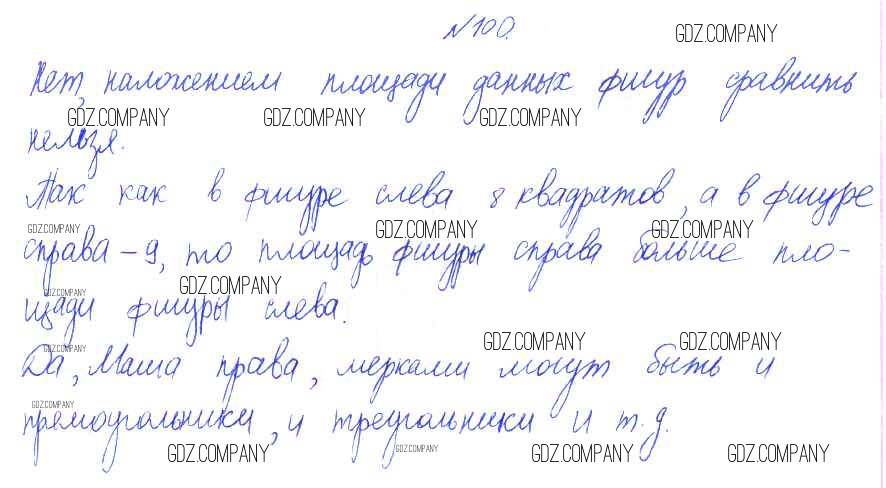 №100.
GDZ.COMPANY
Нет, наложением площади данных фигур сравнить
GDZ.COMPANY GDZ.COMPANY GDZ.COMPANY
нельзя.
Так как в фигуре слева 8 квадратов, а в фигуре
GDZ.COMPANY GDZ.COMPANY GDZ.COMPANY
справа – 9, то площадь фигуры справа больше пло-
GDZ.COMPANY GDZ.COMPANY
щади фигуры слева.
GDZ.COMPANY GDZ.COMPANY GDZ.COMPANY
Да, Маша права, мерками могут быть и
GDZ.COMPANY
прямоугольники, и треугольники и т.д.
GDZ.COMPANY GDZ.COMPANY GDZ.COMPANY GDZ.COMPANY